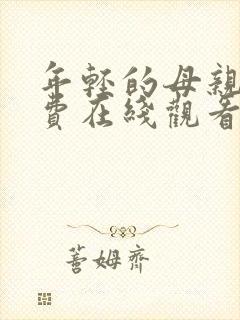 年輕的母親
費在綫觀看
蓍姆齊